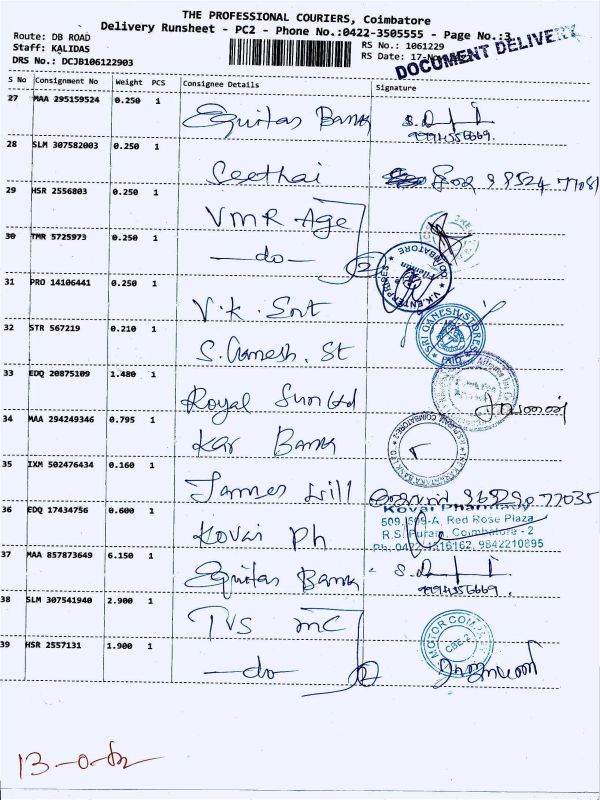 THE PROFESSIONAL COURIERS, Coimbatore
Delivery Runsheet - PC2 - Phone No.:0422-3505555 - Page No.:3
Route: DB ROAD
Staff: KALIDAS
DRS No.: DCJB106122903
RS No.: 1061229
RS Date: 17-Nov
DOCUMENT DELIVERY
S No Consignment No Weight PCS Consignee Details Signature
27 MAA 295159524 0.250 1 Equitas Bank
28 SLM 307582003 0.250 1 Seethai
29 HSR 2556803 0.250 1 VMR Age
30 TMR 5725973 0.250 1 —do— 2
V.K.ENTERPRISES
31 PRO 14106441 0.250 1 V.K. Ent
32 STR 567219 0.210 1 S. Ganesh. St
SRI GANESH STORES
33 EDQ 20875109 1.480 1 Royal Sun Ltd
34 MAA 294249346 0.795 1 Kar Bank
35 IXM 502476434 0.160 1 James Will
36 EDQ 17434756 0.600 1 Kovai Ph
Kovai Pharmacy
509, 509-A, Red Rose Plaza
R.S. Puram, Coimbatore - 2
9842210895
37 MAA 857873649 6.150 1 Equitas Bank
38 SLM 307541940 2.900 1 TVS MC
MOTOR COMPANY
CBE-2
39 HSR 2557131 1.900 1 —do— 2